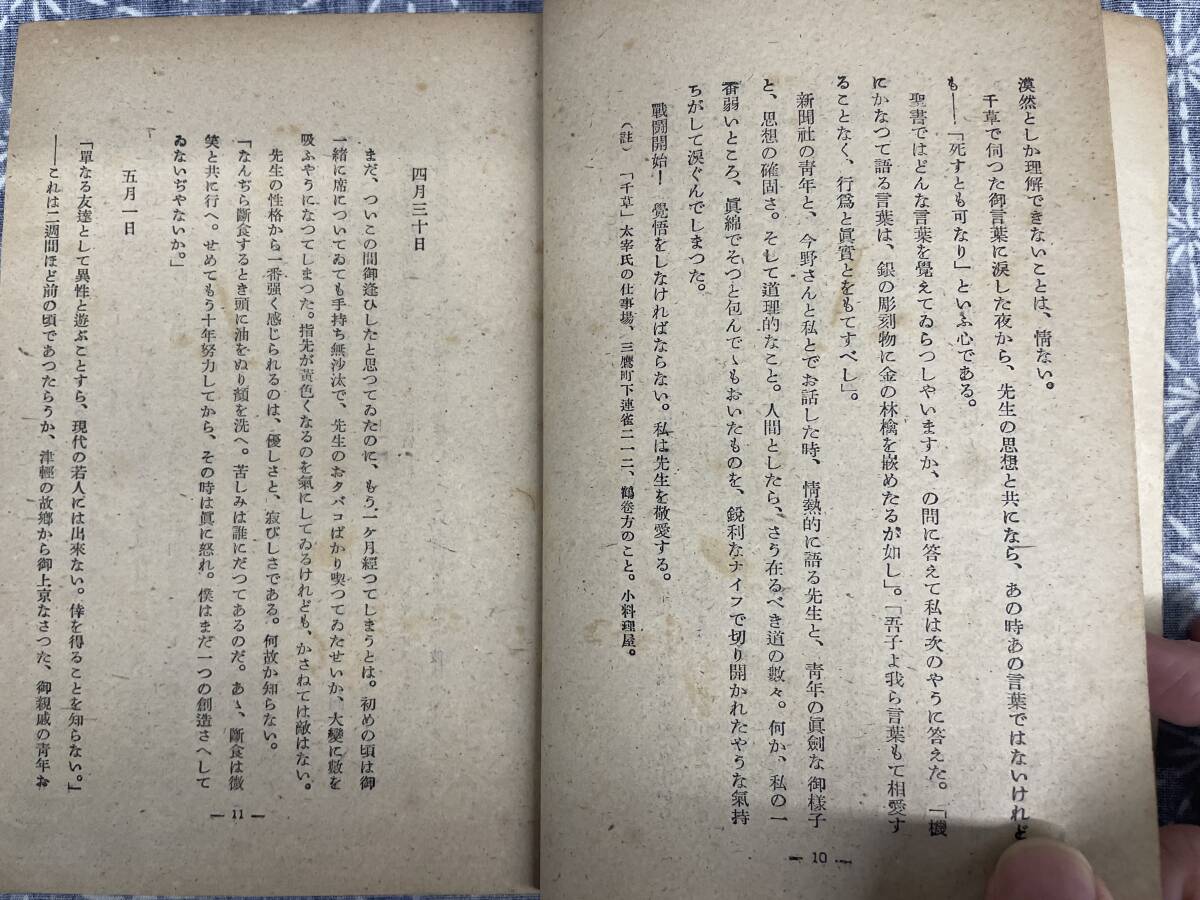 漠然としか理解できないことは、情ない。
千草で伺つた御言葉に涙した夜から、先生の思想と共になら、あの時あの言葉ではないけれど
も――「死すとも可なり」といふ心である。
聖書ではどんな言葉を覺えてゐらつしやいますか、の問に答えて私は次のやうに答えた。「機
にかなつて語る言葉は、銀の彫刻物に金の林檎を嵌めたるが如し」。「吾子よ我ら言葉もて相愛す
ることなく、行爲と眞實とをもてすべし」。
新聞社の靑年と、今野さんと私とでお話した時、情熱的に語る先生と、靑年の眞劍な御樣子
と、思想の確固さ。そして道理的なこと。人間としたら、さう在るべき道の數々。何か、私の一
番弱いところ、眞綿でそつと包んでゝもおいたものを、鋭利なナイフで切り開かれたやうな氣持
ちがして涙ぐんでしまつた。
戰鬪開始！　覺悟をしなければならない。私は先生を敬愛する。
（註）　「千草」太宰氏の仕事場、三鷹町下連雀二一二、鶴卷方のこと。小料理屋。
― 10 ―
四月三十日
まだ、ついこの間御逢ひしたと思つてゐたのに、もう一ケ月經つてしまうとは。初めの頃は御
一緒に席についてゐても手持ち無沙汰で、先生のおタバコばかり喫つてゐたせいか、大變に數を
吸ふやうになつてしまつた。指先が黃色くなるのを氣にしてゐるけれども、かさねては敵はない。
先生の性格から一番强く感じられるのは、優しさと、寂びしさである。何故か知らない。
「なんぢら斷食するとき頭に油をぬり顏を洗へ。苦しみは誰にだつてあるのだ。あゝ、斷食は微
笑と共に行へ。せめてもう十年努力してから、その時は眞に怒れ。僕はまだ一つの創造さへして
ゐないぢやないか。」
五月一日
「單なる友達として異性と遊ぶことすら、現代の若人には出來ない。倖を得ることを知らない。」
――これは二週間ほど前の頃であつたらうか、津輕の故鄕から御上京なさつた、御親戚の靑年お
― 11 ―